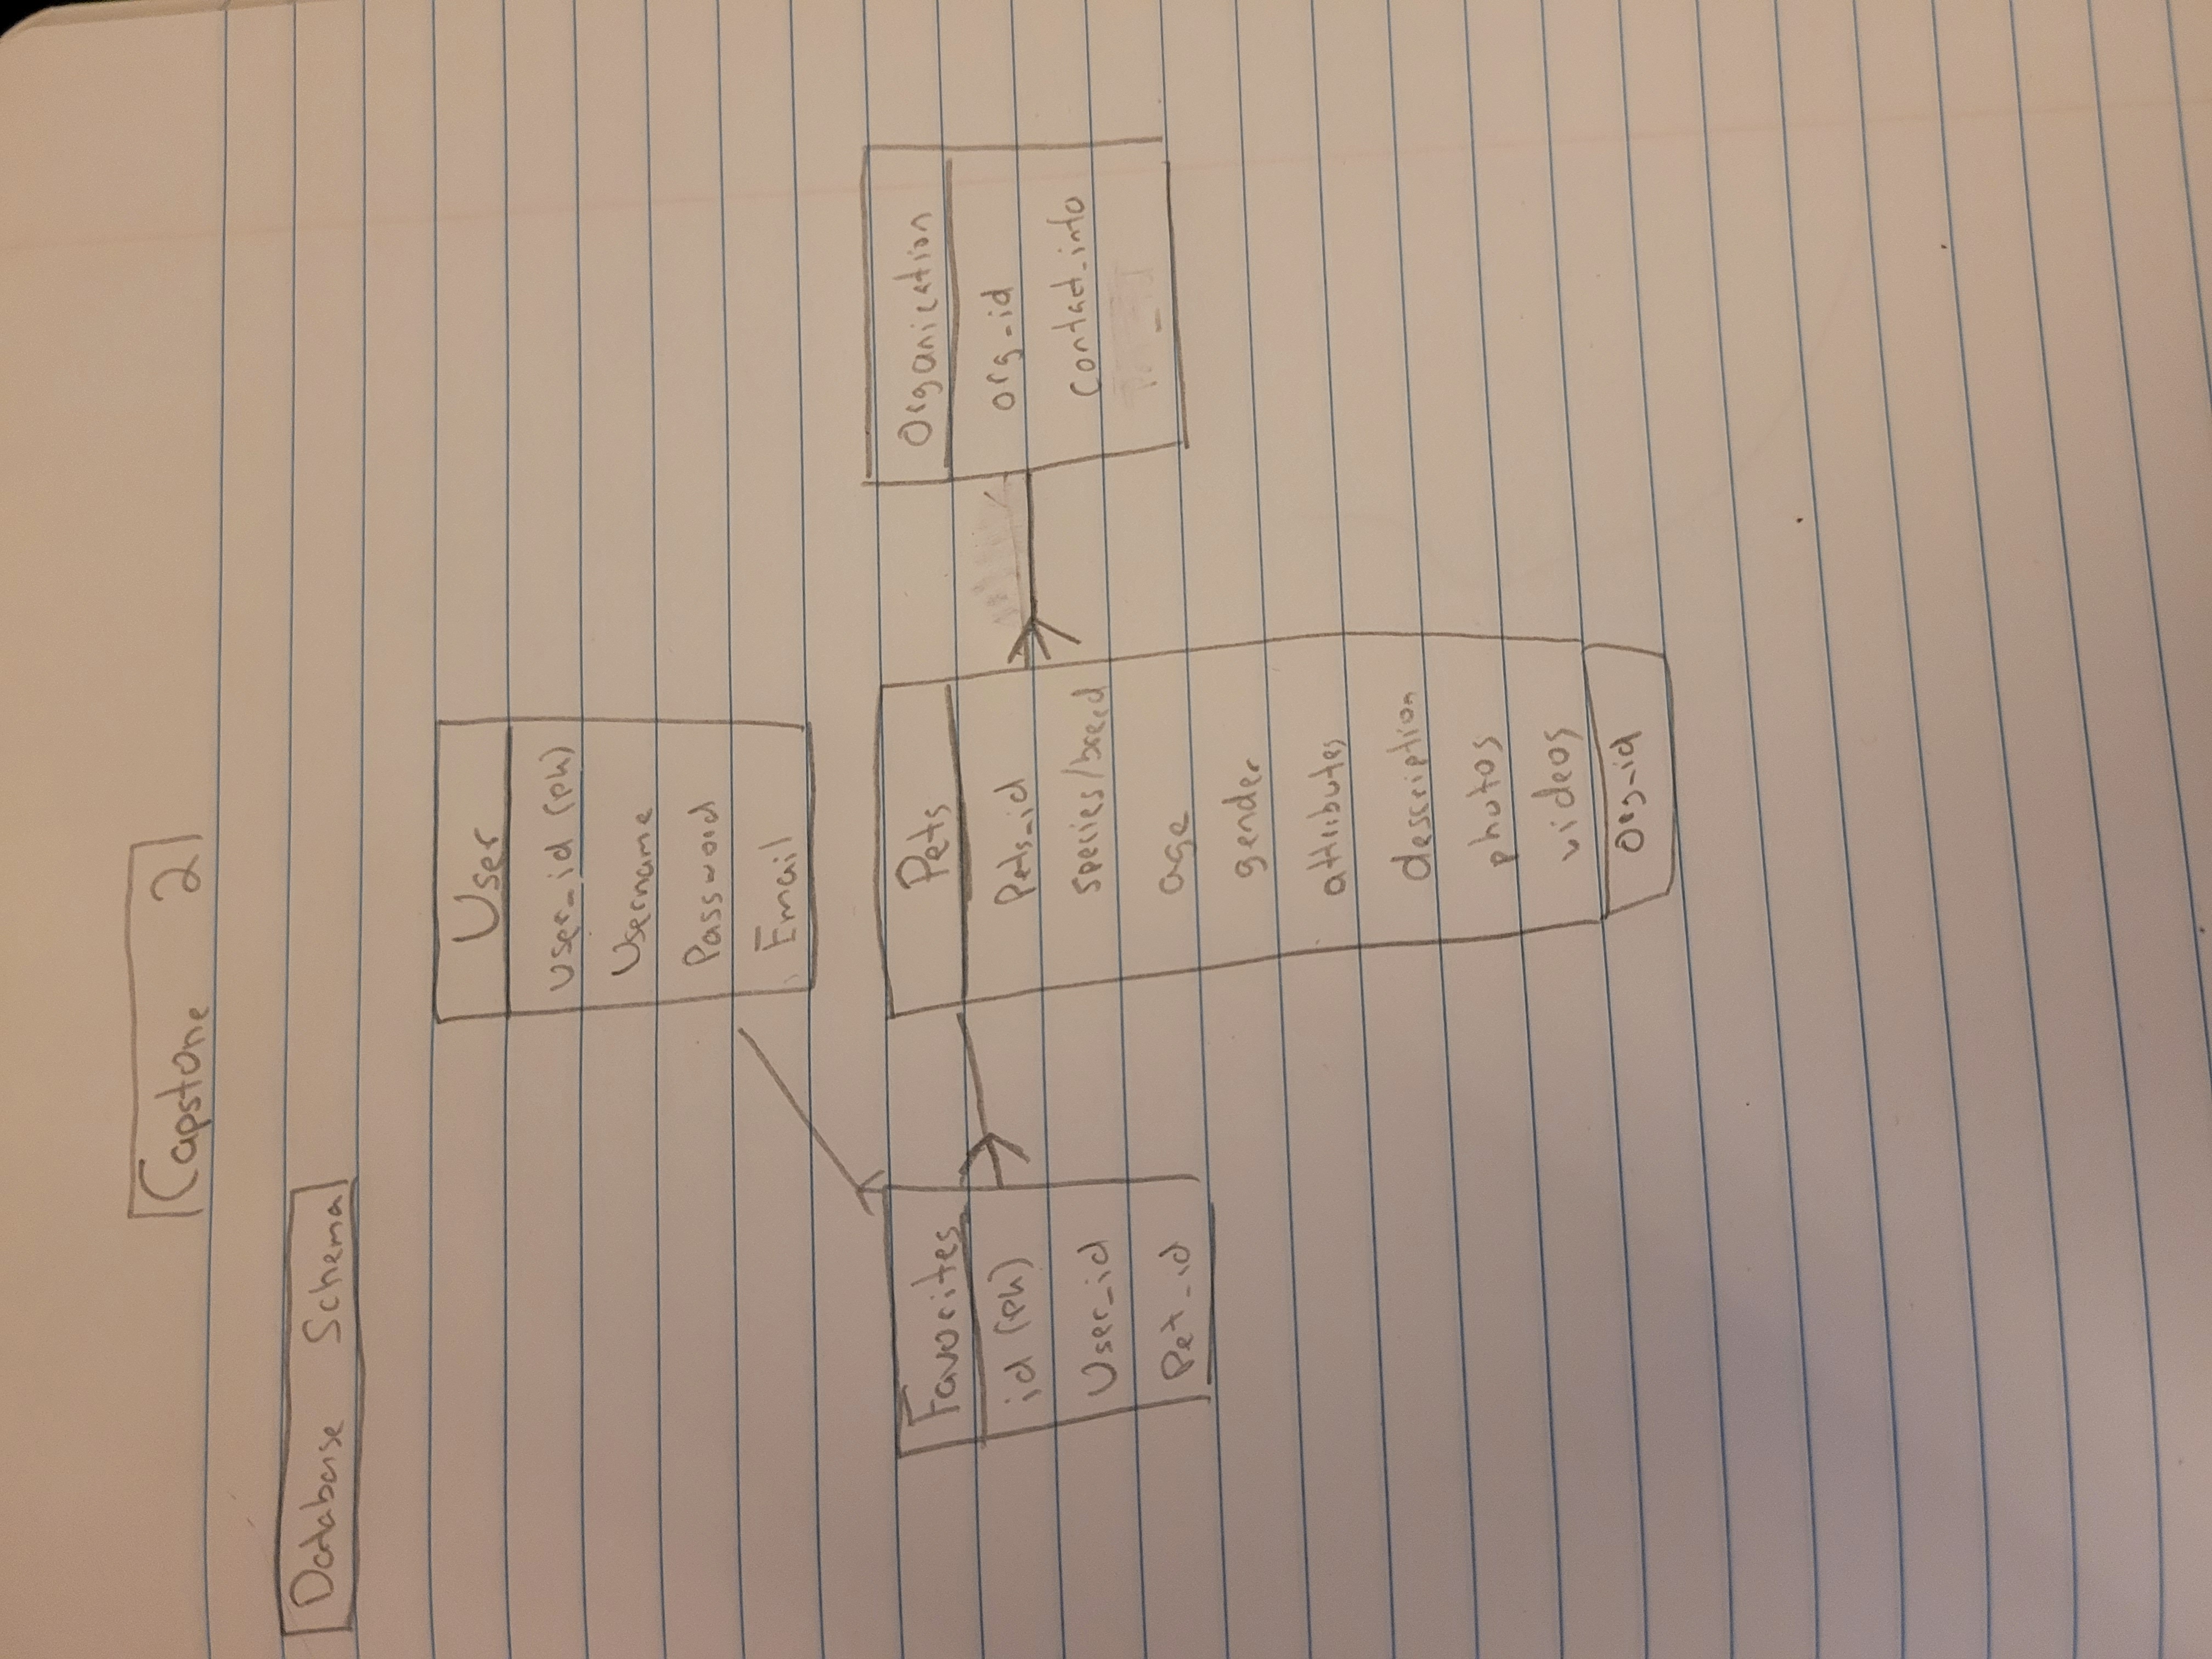 Capstone 2
Database Schema
User
user_id (pk)
Username
Password
Email
Favorites
id (pk)
User_id
Pet_id
Pets
Pets_id
species/breed
age
gender
attributes
description
photos
videos
org_id
Organization
org_id
contact_info